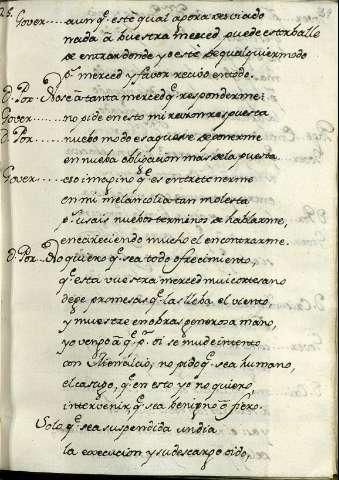 Gover.... aunq. este qual apora desviado
nada â buestra merced puede estorballe
de entrar donde yo esté de qualquier modo
p. merced y favor recibo en todo.
D. Por. No se â tanta merced q. responderme:
Gover.... no pide en esto mi razon respuesta
D. Por.... nuebo modo es aquese de ponerme
en nueba obligacion mas de la puesta
Gover.... eso imagino q. es entretenerme
en mi melancolia tan molesta
p. usais nuebos terminos de hablarme,
encareciendo mucho el encontrarme.
D. Por. No quiero q. sea todo ofrecimiento,
q. está vuestra merced mui cortesano
deje promesas q. las lleba el viento,
y muestre en obras generosa mano,
yo vengo â q. p. si se mude intento
con no pido q. sea humano,
el castigo, q. en esto yo no quiero
intervenir, q. sea benigno ô fiero.
Solo q. sea suspendida un dia
la execucion y su descargo oido,